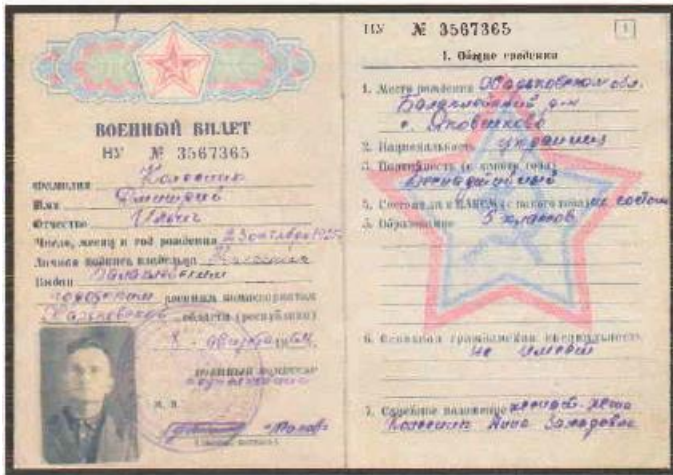 ВОЕННЫЙ БИЛЕТ
НУ № 3567365
Фамилия
Имя Дмитрий
Отчество Ильич
Число, месяц и год рождения 23 октября
Личная подпись владельца
Выдан Балаклейским
городским военным комиссариатом
Харьковской области (республики)
8 августа
ВОЕННЫЙ КОМИССАР
подполковник
М. П.
НУ № 3567365
1
1. Общие сведения
1. Место рождения Харьковская обл.
Балаклейский р-н
с.
2. Национальность украинец
3. Партийность (с какого года)
беспартийный
5. Состоял ли в ВЛКСМ (с какого года) не состоял
5. Образование 5 классов
6. Основная гражданская специальность
не имеет
7. Семейное положение женат. жена
Анна